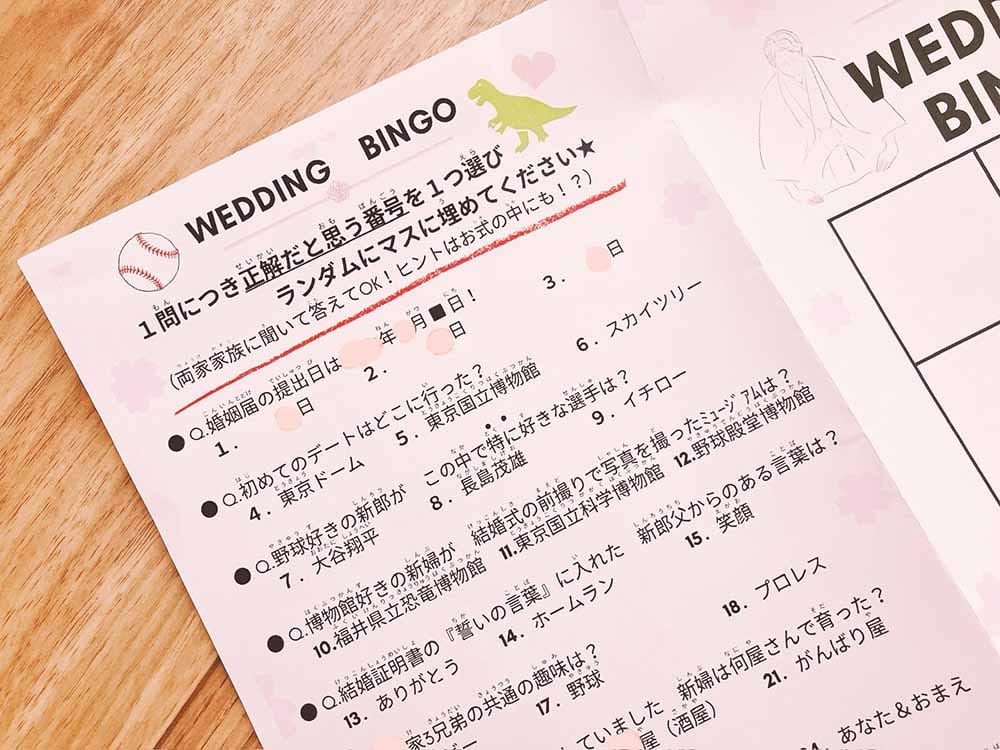 WEDDING BINGO
1問につき正解だと思う番号を1つ選び
ランダムにマスに埋めてください★
(両家家族に聞いて答えてOK!ヒントはお式の中にも!?)
●Q.婚姻届の提出日は 年 月■日!
1. 日 2. 日 3. 日
●Q.初めてのデートはどこに行った?
4. 東京ドーム 5. 東京国立博物館 6. スカイツリー
●Q.野球好きの新郎が この中で特に好きな選手は?
7. 大谷翔平 8. 長島茂雄 9. イチロー
●Q.博物館好きの新婦が 結婚式の前撮りで写真を撮ったミュージアムは?
10.福井県立恐竜博物館 11.東京国立科学博物館 12.野球殿堂博物館
●Q.結婚証明書の『誓いの言葉』に入れた 新郎父からのある言葉は?
13. ありがとう 14. ホームラン 15. 笑顔
家3兄弟の共通の趣味は?
17. 野球 18. プロレス
していました 新婦は何屋さんで育った?
屋(酒屋) 21. がんばり屋
あなた&おまえ
WEDD
BIN